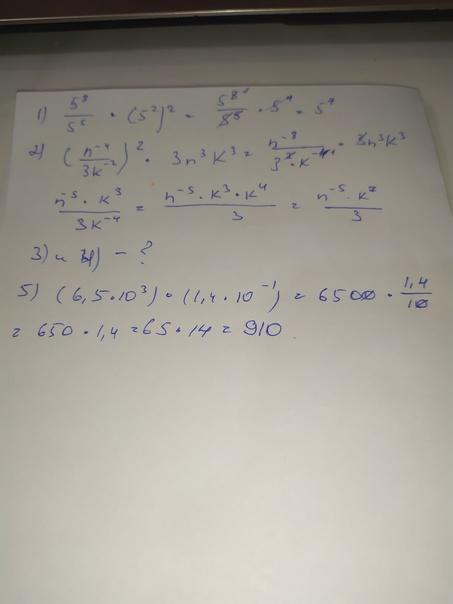 1) 5⁸/5⁵ · (5²)² = 5⁸/5⁵ · 5⁴ = 5⁷
2) (n⁻⁴/3k⁻²)² · 3n³k³ = n⁻⁸/3²·k⁻⁴ · 3n³k³
n⁻⁵·k³/3k⁻⁴ = n⁻⁵·k³·k⁴/3 = n⁻⁵·k⁷/3
3) и 4) - ?
5) (6,5·10³)·(1,4·10⁻¹) = 6500 · 1,4/10
= 650·1,4 = 65·14 = 910.